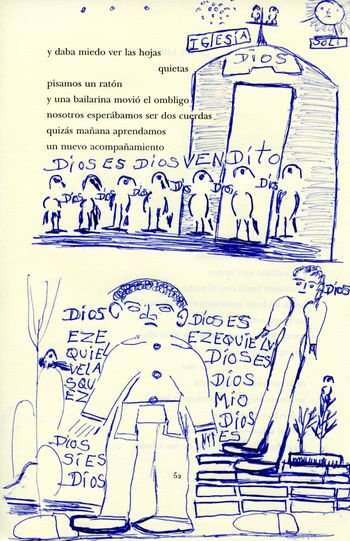 IGLESIA
SOLI
DIOS
y daba miedo ver las hojas
quietas
pisamos un ratón
y una bailarina movió el ombligo
nosotros esperábamos ser dos cuerdas
quizás mañana aprendamos
un nuevo acompañamiento
DIOS ES DIOS VENDITO
DIOS DIOS DIOS DIOS DIOS
DIOS
EZE
QUIE
VELA
SQU
EZ
DIOS ES
EZEQUIELV
DIOSES
DIOS
MIO
DIOS
ES
DIOS
DIOS
SIES
DIOS
52